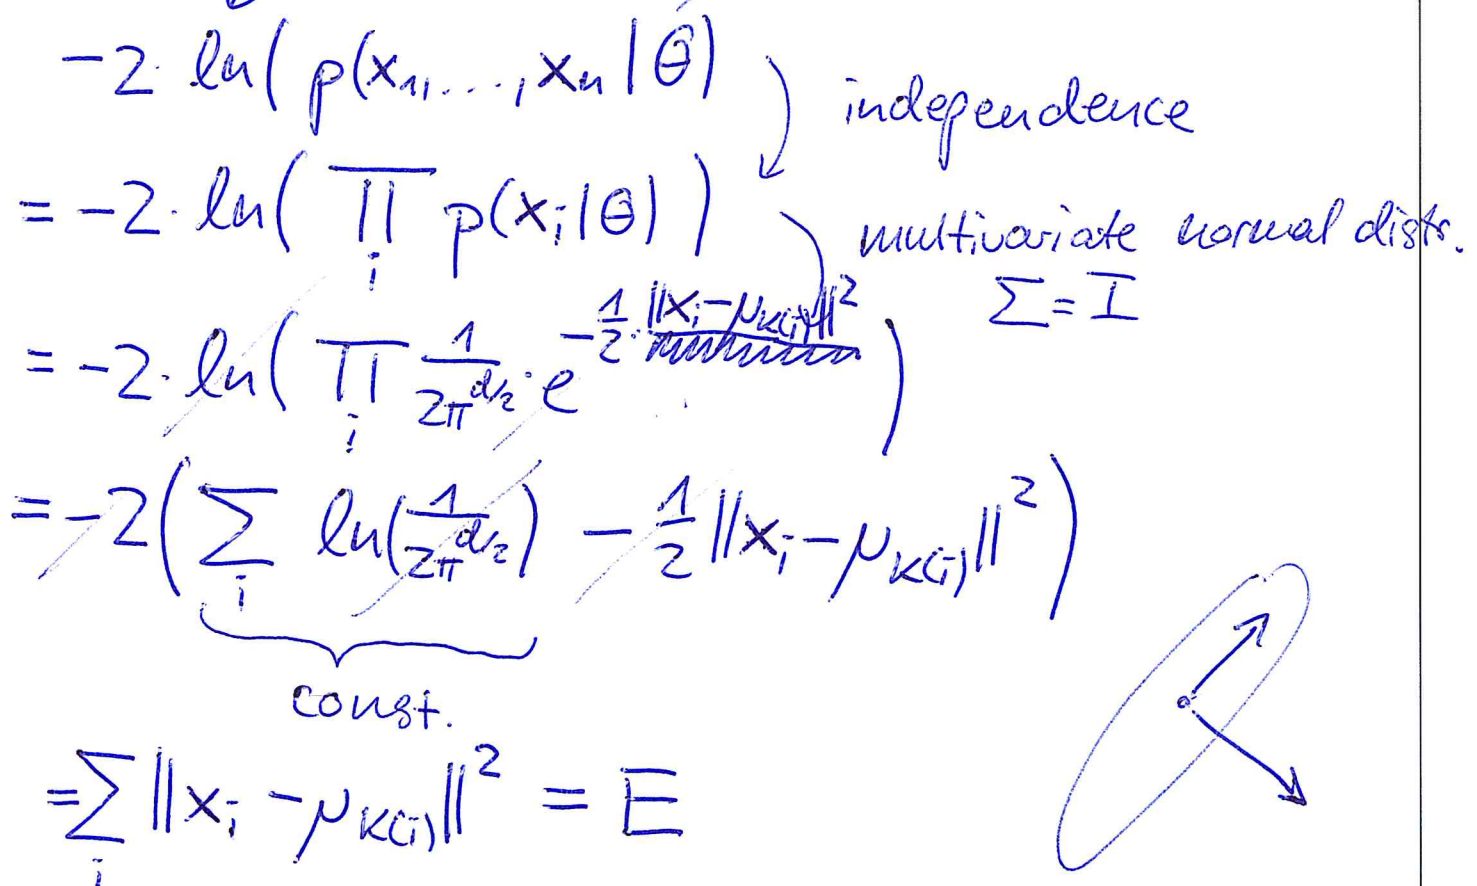 -2· ln( p(x₁,...,xₙ | θ)
independence
= -2· ln( ∏ᵢ p(xᵢ|θ) )
multivariate normal distr.
Σ = I
= -2· ln( ∏ᵢ 1/2π^(d/2) · e^(-1/2·||xᵢ-μ_k(i)||²) )
= -2( Σᵢ ln(1/2π^(d/2)) - 1/2 ||xᵢ-μ_k(i)||² )
const.
= Σᵢ ||xᵢ - μ_k(i)||² = E